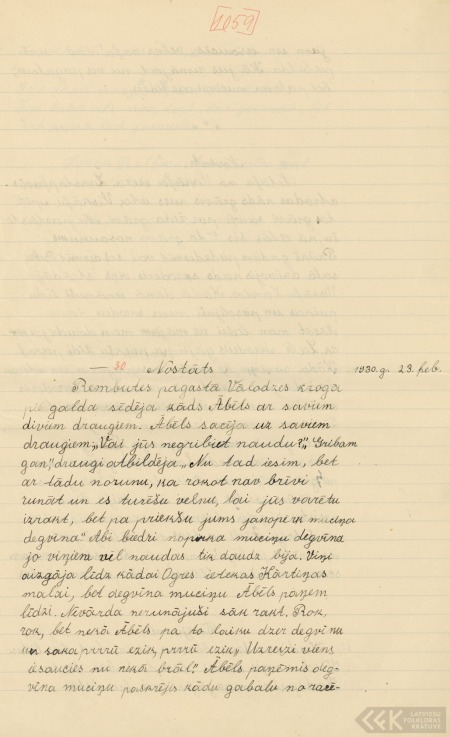 1059
— 30 Nostāts 1930.g. 23. feb.
Rembates pagastā Vālodzes krogā
pie galda sēdēja kāds Ābēls ar saviem
diviem draugiem. Ābēls sacīja uz saviem
draugiem: „Vai jūs negribiet naudu?" „Gribam
gan", draugi atbildēja. „Nu tad iesim, bet
ar tādu norunu, ka rokot nav brīvi
runāt un es turēšu velnu, lai jūs varētu
izrakt, bet pa priekšu jums janopērk muciņa
degvīna." Abi biedri nopirka muciņu degvīna
jo viņiem vēl naudas tik daudz bija. Viņi
aizgāja līdz kādai Ogres ietekas Kārtiņas
malai, bet degvīna muciņu Ābēls paņem
līdzi. Nevārda nerunājuši sāk rakt. Rok,
rok, bet nekā Ābēls pa to laiku dzer degvīnu
un saka prrrū ezik, prrrū ezik. Uzreizi viens
iesaucies nu nekā brāl." Ābēls paņēmis deg-
vīna muciņu paskrējis kādu gabalu no racē-
LATVIEŠU
FOLKLORAS
KRĀTUVE